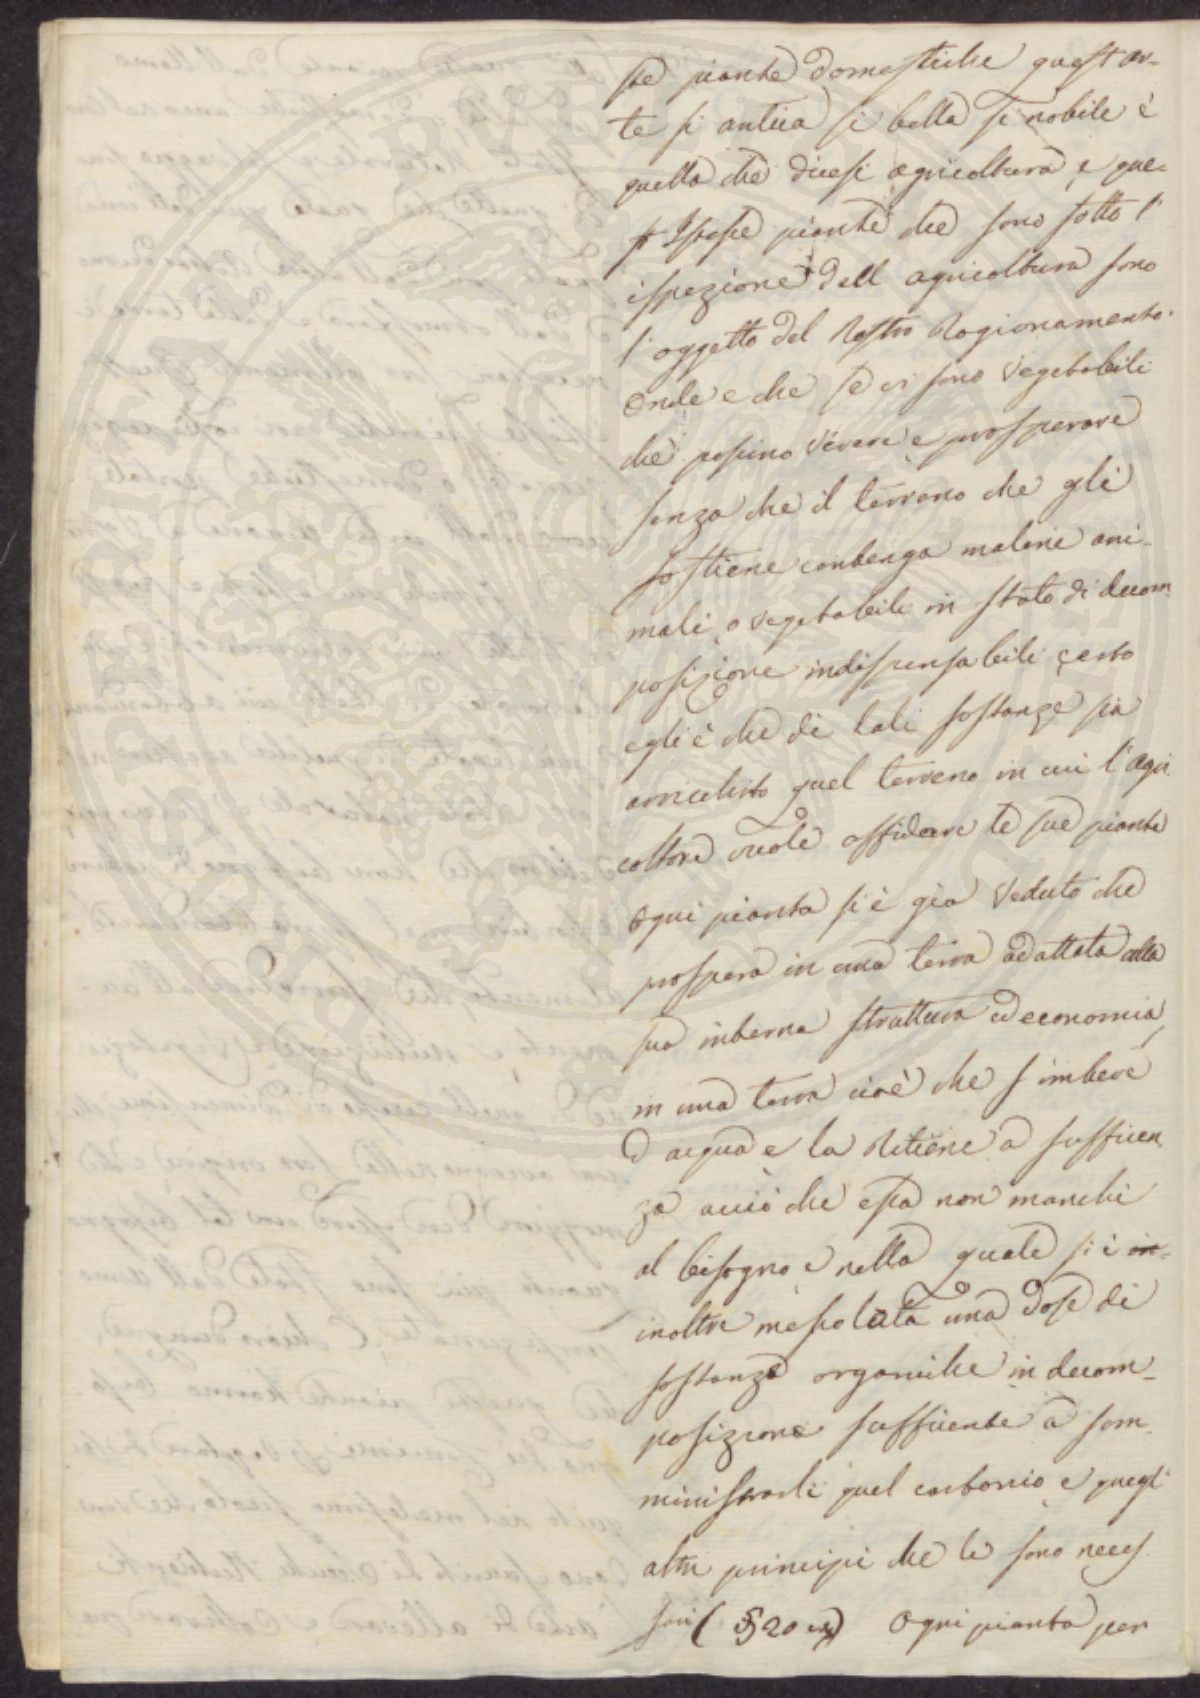 ste piante domestiche quest'ar-
te si antica si bella si nobile è
quella che dicesi agricoltura, e que-
st Istesse piante che sono sotto l'
ispezione dell agricoltura sono
l'oggetto del nostro Ragionamento.
Onde e che se vi sono Vegetabili
che possino Vivere e prosperare
senza che il terreno che gli
sostiene contenga materie ani-
mali, o vegetabili in stato di decom
posizione indispensabili certo
egli è che di tali sostanze sia
arricchito quel terreno in cui l'agri
coltore vuole affidare le sue piante
Ogni pianta si è già Veduto che
prospera in una terra adattata alla
sua interna struttura ed economia,
in una terra cioè che s'imbeve
d'acqua e la Ritiene a sufficien
za acciò che essa non manchi
al bisogno e nella quale si è in-
inoltre mescolata una dose di
sostanze organiche in decom-
posizione sufficiente a som
ministrarli quel carbonio, e quegl'
altri principi che le sono neces
sari (§ 20 ) Ogni pianta per